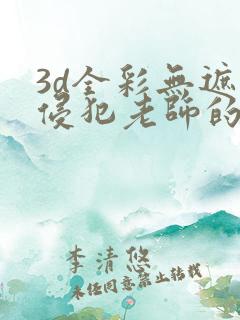 3d全彩無遮
侵犯老師的
李清悠
未经同意禁止转载